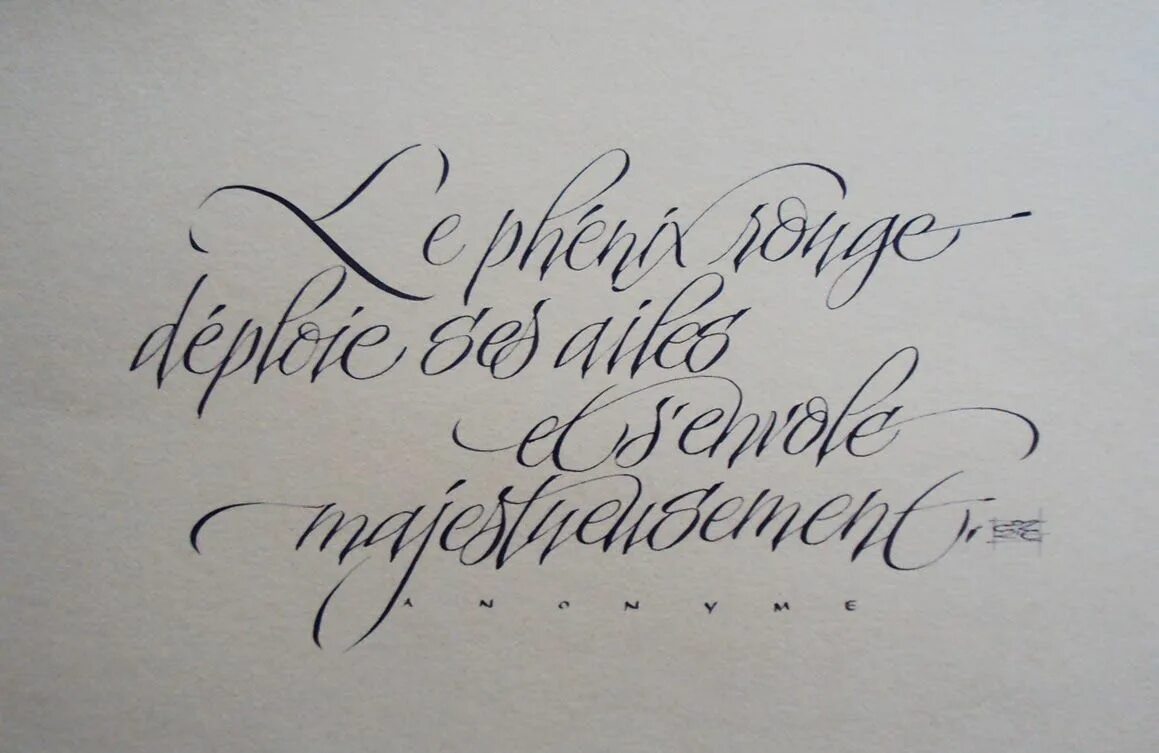 Le phénix rouge
déploie ses ailes
et s'envole
majestueusement.
ANONYME